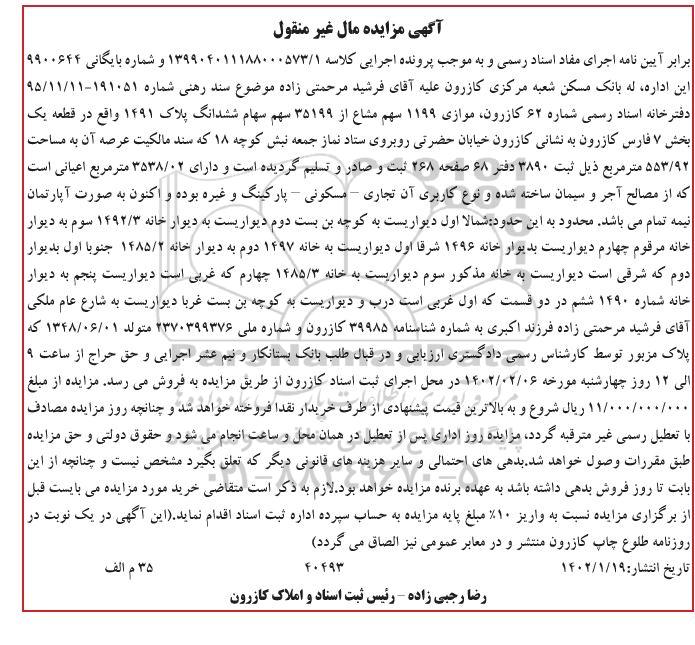 آگهی مزایده مال غیر منقول
برابر آیین نامه اجرای مفاد اسناد رسمی و به موجب پرونده اجرایی کلاسه ۱۳۹۹۰۴۰۱۱۱۸۸۰۰۰۵۷۳/۱ و شماره بایگانی ۹۹۰۰۶۴۴
این اداره، له بانک مسکن شعبه مرکزی کازرون علیه آقای فرشید مرحمتی زاده موضوع سند رهنی شماره ۱۹۱۰۵۱-۹۵/۱۱/۱۱
دفترخانه اسناد رسمی شماره ۶۲ کازرون، موازی ۱۱۹۹ سهم مشاع از ۳۵۱۹۹ سهم سهام ششدانگ پلاک ۱۴۹۱ واقع در قطعه یک
بخش ۷ فارس کازرون به نشانی کازرون خیابان حضرتی روبروی ستاد نماز جمعه نبش کوچه ۱۸ که سند مالکیت عرصه آن به مساحت
۵۵۳/۹۲ مترمربع ذیل ثبت ۳۸۹۰ دفتر ۶۸ صفحه ۲۶۸ ثبت و صادر و تسلیم گردیده است و دارای ۳۵۳۸/۰۲ مترمربع اعیانی است
که از مصالح آجر و سیمان ساخته شده و نوع کاربری آن تجاری – مسکونی – پارکینگ و غیره بوده و اکنون به صورت آپارتمان
نیمه تمام می باشد. محدود به این حدود:شمالا اول دیواریست به کوچه بن بست دوم دیواریست به دیوار خانه ۱۴۹۲/۳ سوم به دیوار
خانه مرقوم چهارم دیواریست بدیوار خانه ۱۴۹۶ شرقا اول دیواریست به خانه ۱۴۹۷ دوم به دیوار خانه ۱۴۸۵/۲ جنوبا اول بدیوار
دوم که شرقی است دیواریست به خانه مذکور سوم دیواریست به خانه ۱۴۸۵/۳ چهارم که غربی است دیواریست پنجم به دیوار
خانه شماره ۱۴۹۰ ششم در دو قسمت که اول غربی است درب و دیواریست به کوچه بن بست غربا دیواریست به شارع عام ملکی
آقای فرشید مرحمتی زاده فرزند اکبری به شماره شناسنامه ۳۹۹۸۵ کازرون و شماره ملی ۲۳۷۰۳۹۹۳۷۶ متولد ۱۳۴۸/۰۶/۰۱ که
پلاک مزبور توسط کارشناس رسمی دادگستری ارزیابی و در قبال طلب بانک بستانکار و نیم عشر اجرایی و حق حراج از ساعت ۹
الی ۱۲ روز چهارشنبه مورخه ۱۴۰۲/۰۲/۰۶ در محل اجرای ثبت اسناد کازرون از طریق مزایده به فروش می رسد. مزایده از مبلغ
۱۱/۰۰۰/۰۰۰/۰۰۰ ریال شروع و به بالاترین قیمت پیشنهادی از طرف خریدار نقدا فروخته خواهد شد و چنانچه روز مزایده مصادف
با تعطیل رسمی غیر مترقبه گردد، مزایده روز اداری پس از تعطیل در همان محل و ساعت انجام می شود و حقوق دولتی و حق مزایده
طبق مقررات وصول خواهد شد.بدهی های احتمالی و سایر هزینه های قانونی دیگر که تعلق بگیرد مشخص نیست و چنانچه از این
بابت تا روز فروش بدهی داشته باشد به عهده برنده مزایده خواهد بود.لازم به ذکر است متقاضی خرید مورد مزایده می بایست قبل
از برگزاری مزایده نسبت به واریز ۱۰٪ مبلغ پایه مزایده به حساب سپرده اداره ثبت اسناد اقدام نماید.(این آگهی در یک نوبت در
روزنامه طلوع چاپ کازرون منتشر و در معابر عمومی نیز الصاق می گردد)
تاریخ انتشار:۱۴۰۲/۱/۱۹ ۴۰۴۹۳ ۳۵ م الف
رضا رجبی زاده – رئیس ثبت اسناد و املاک کازرون
ParsNamadData
۰۲۱-۸۸۳۴۹۶۷۰-۵